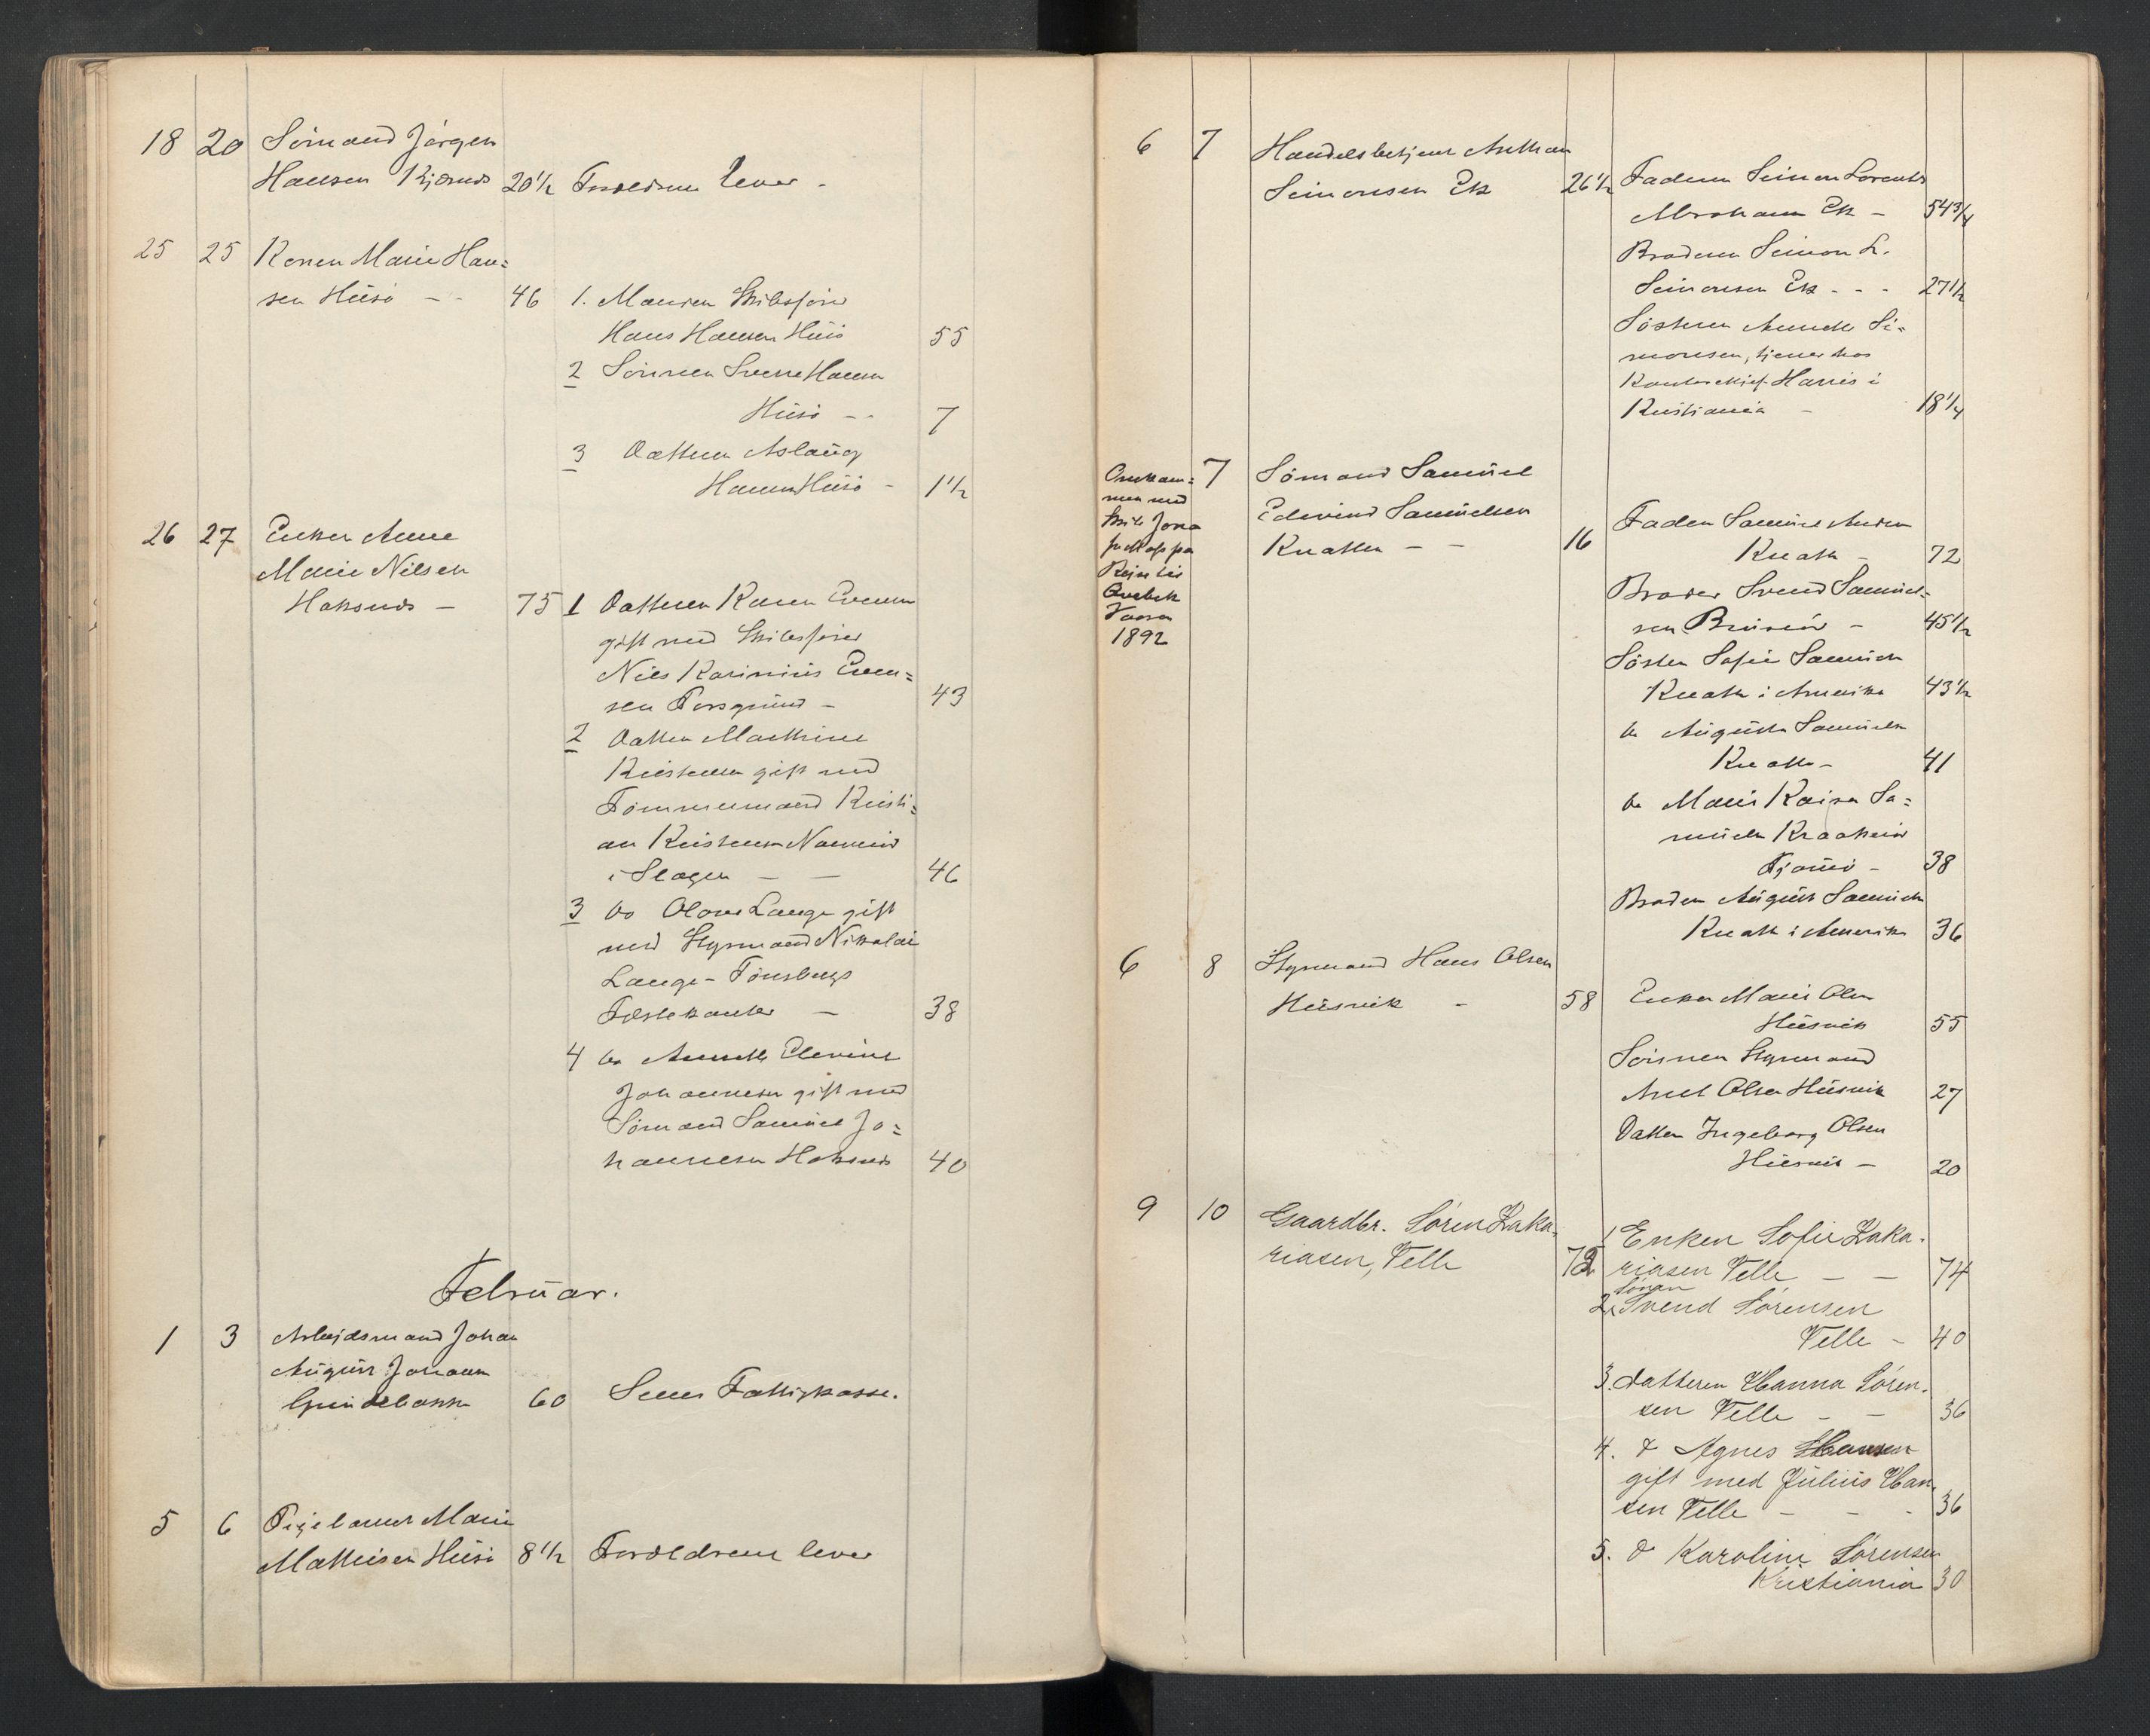 18 20 Sömand Jörgen
Hansen Kjærnæs 20 1/2 Forældrene lever.
25 25 Konen Marie Han=
sen Hüsö - - 46 1. Manden Skibsförer
Hans Hansen Hüsö 55
2 Sönnen Sverre Hansen
Hüsö - - 7
3 Datteren Aslaüg
Hansen Hüsö - 1 1/2
26 27 Enken Anne
Marie Nilsen
Haksnæs - 75 1 Datteren Karen Evensen
gift med Skibsförer
Nils Karinius Even=
sen Porsgründ - 43
2 Datter Mathine
Kristensen gift med
Tömmermand Kristi=
an Kristensen
i Slagen - - 46
3 do Olava Lange gift
med Styrmand Nikolai
Lange - Tönsbergs
Træstekanter - 38
4 do Annette Elevine
Johannesen gift med
Sömand Samüel Jo=
hannesen Haksnæs 40
Febrüar.
1 3 Arbejdsmand Johan
Aügüst Johansen
Grindebakken 60 Sems Fattigkasse.
5 6 Pigebarnet Marie
Mathisen Hüsö 8 1/2 Forældrene lever
6 7 Handelsbetjent Anthon
Simonsen Ek 26 1/2 Faderen Simon Lorents
Abraham Ek - 54 3/4
Broderen Simon L.
Simonsen Ek - - - 27 1/2
Sösteren Annette Si=
monsen, tjener hos
Harris i
Kristiania - 18 1/4
Omkom=
men med
Skib Jona
paa
Rejse til
Qvebek
Vaaren
1892
7 Sömand Samüel
Edevind Samüelsen
Knatten - - 16 Fader Samüel Andersen
Knatten - 72
Broder Svend Samüel=
sen - 45 1/2
Söster Sofie Samüelsen
Knatten i Amerika 43 1/2
do Aügüsta Samüelsen
Knatten - 41
do Marie Kaisa Sa=
müelsen
Tjömö - 38
Broder Aügüst Samüelsen
Knatten i Amerika 36
6 8 Styrmand Hans Olsen
Hüsvik - 58 Enken Marie Olsen
Hüsvik 55
Sönnen Styrmand
Axel Olsen Hüsvik 27
Datter Ingeborg Olsen
Hüsvik - 20
9 10 Gaardbr. Sören Zaka-
riasen, Velle 72 1 Enken Sofie Zaka-
riasen Velle - - 74
sönnen
2. Svend Sörensen
Velle - 40
3. datteren Hanna Sören-
sen Velle - - 36
4. d Agnes Hansen
gift med Jülius Han-
sen Velle - - - 36
5. d Karoline Sörensen
Kristiania 30